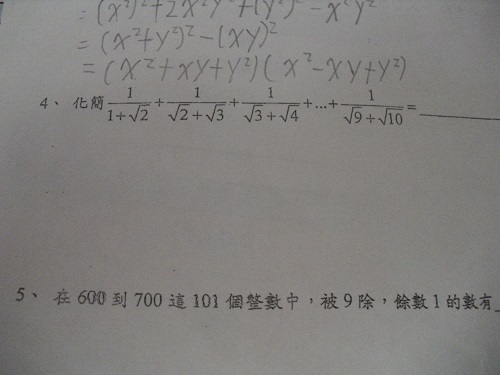 = (x²)²+2x²y²+(y²)² - x²y²
= (x²+y²)² - (xy)²
= (x²+xy+y²)(x²-xy+y²)
4、 化簡 1/(1+√2) + 1/(√2+√3) + 1/(√3+√4) +...+ 1/(√9+√10) = ______
5、 在 600 到 700 這 101 個整數中，被 9 除，餘數 1 的數有_